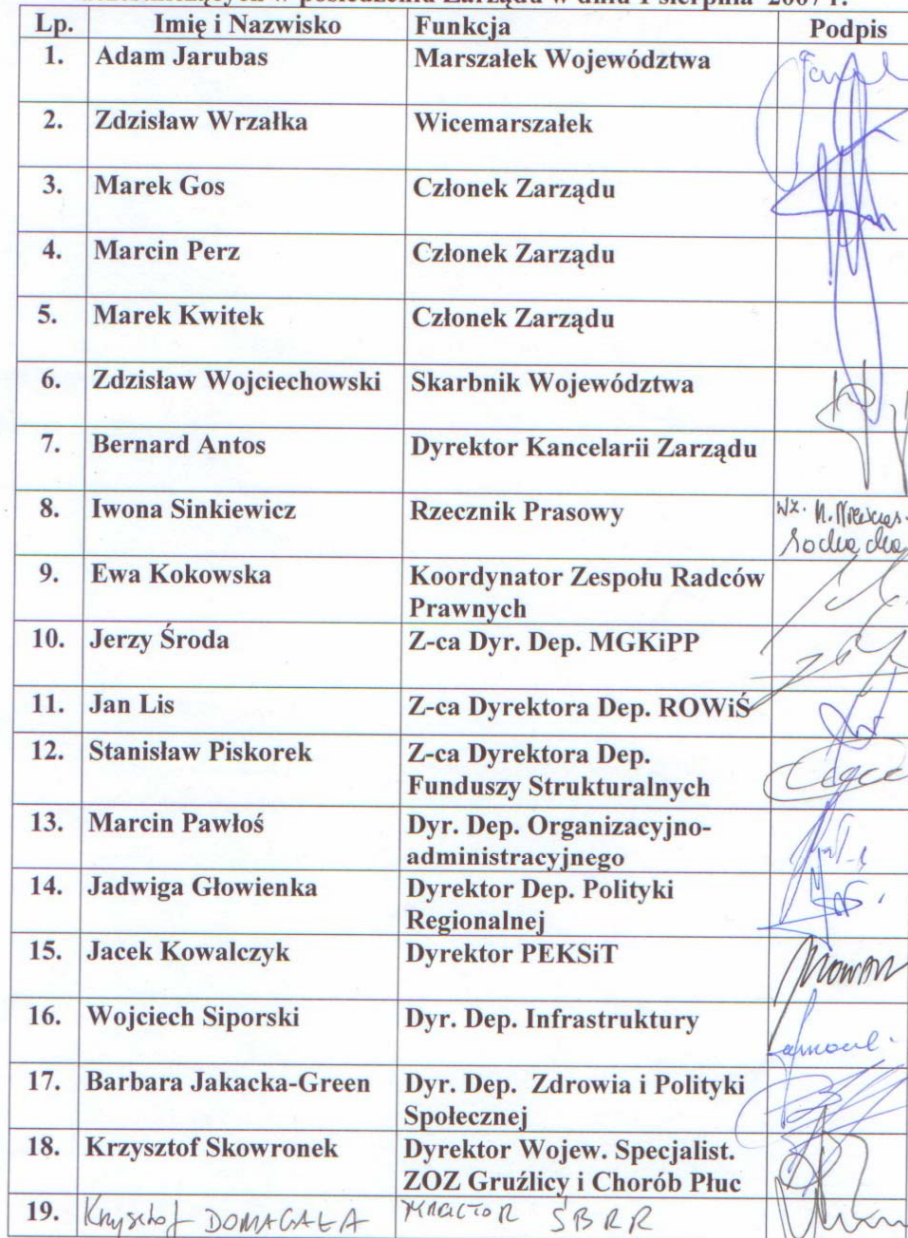 posiedzeniu Zarządu w dniu 1 sierpnia 2007 r.
Lp. Imię i Nazwisko Funkcja Podpis
1. Adam Jarubas Marszałek Województwa
2. Zdzisław Wrzałka Wicemarszałek
3. Marek Gos Członek Zarządu
4. Marcin Perz Członek Zarządu
5. Marek Kwitek Członek Zarządu
6. Zdzisław Wojciechowski Skarbnik Województwa
7. Bernard Antos Dyrektor Kancelarii Zarządu
8. Iwona Sinkiewicz Rzecznik Prasowy
9. Ewa Kokowska Koordynator Zespołu Radców
Prawnych
10. Jerzy Środa Z-ca Dyr. Dep. MGKiPP
11. Jan Lis Z-ca Dyrektora Dep. ROWiŚ
12. Stanisław Piskorek Z-ca Dyrektora Dep.
Funduszy Strukturalnych
13. Marcin Pawłoś Dyr. Dep. Organizacyjno-
administracyjnego
14. Jadwiga Głowienka Dyrektor Dep. Polityki
Regionalnej
15. Jacek Kowalczyk Dyrektor PEKSiT
16. Wojciech Siporski Dyr. Dep. Infrastruktury
17. Barbara Jakacka-Green Dyr. Dep. Zdrowia i Polityki
Społecznej
18. Krzysztof Skowronek Dyrektor Wojew. Specjalist.
ZOZ Gruźlicy i Chorób Płuc
19. Krzysztof DOMAGAŁA ŚBRR